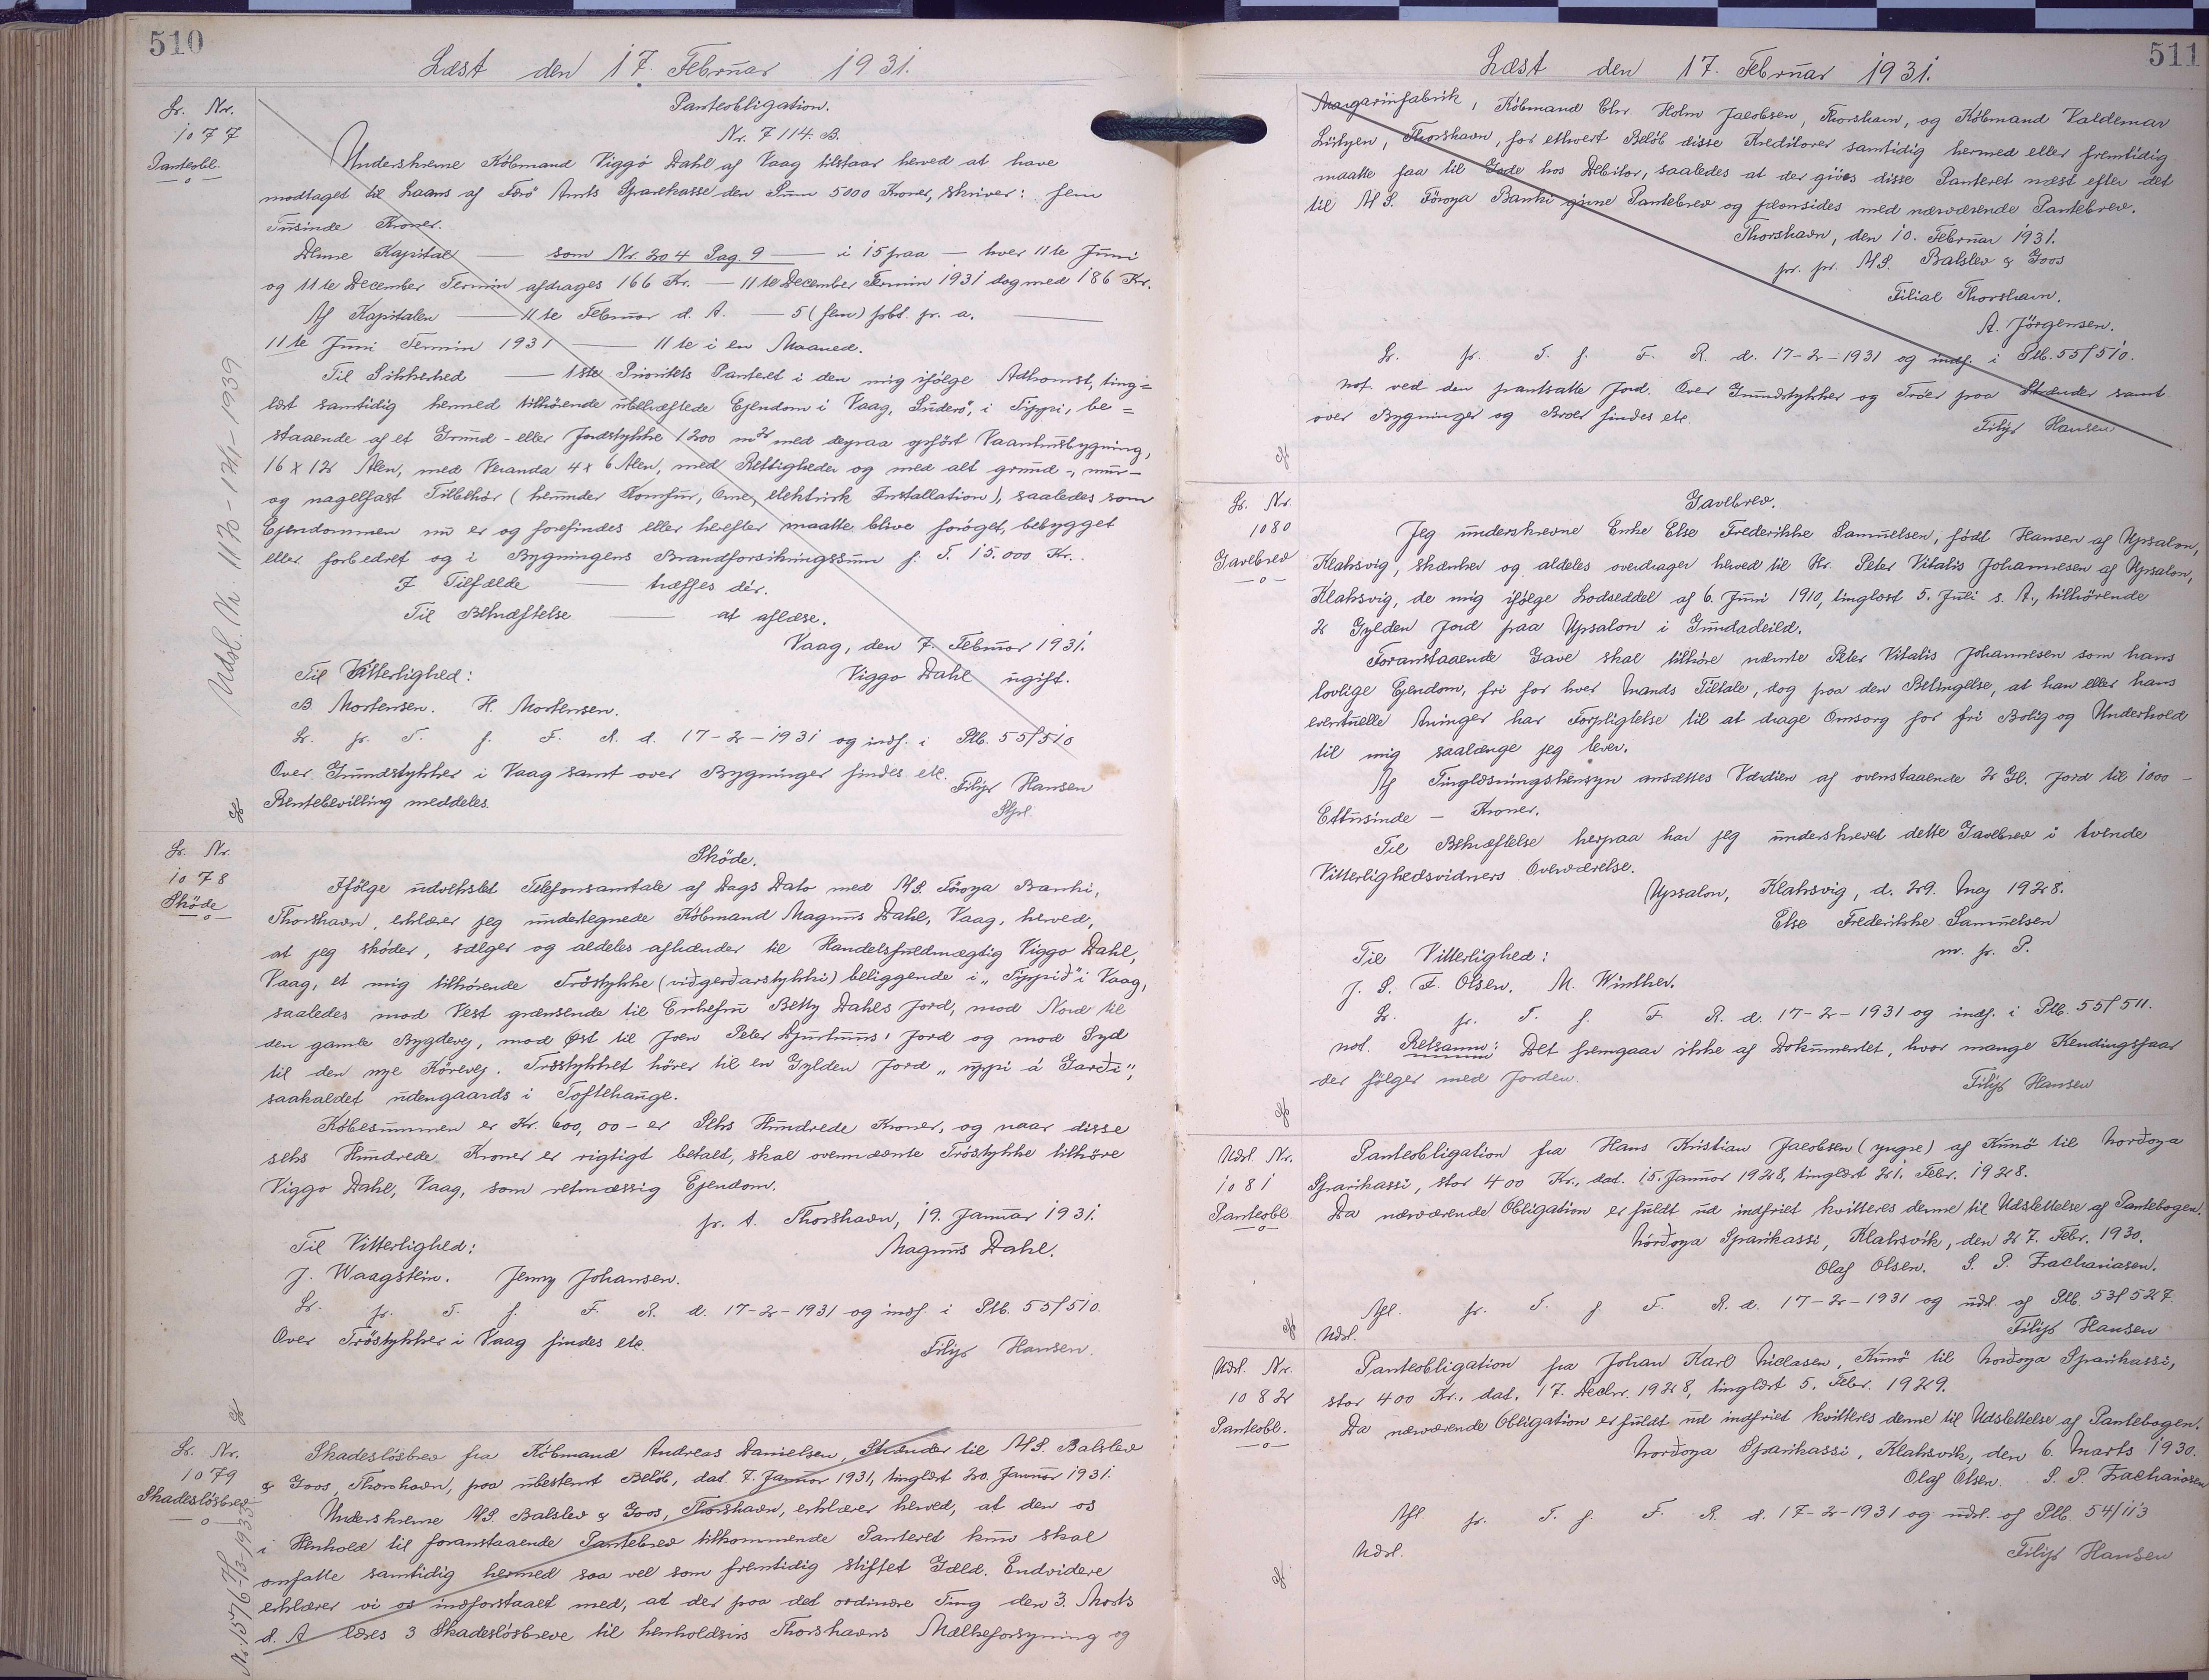 510
Læst den 17. Februar 1931.
Lr. Nr.
1077
Panteobl.
Panteobligation.
Nr. 7114. B.
Underskrevne Köbmand Viggo Dahl af Vaag tilstaar herved at have
modtaget til Laans af Færö Amts Sparekasse den Sum 5000 Kroner, skriver: fem
Tusinde Kroner.
Denne Kapital — som Nr. 204 Pag. 9 — i 15 paa — hver 11te Juni
og 11te December Termin afdrages 166 Kr. — 11te December Termin 1931 dog med 186 Kr.
Af Kapitalen — 11te Februar d. A. — 5 (fem) pCt. pr. a. —
11te Juni Termin 1931 — 11te i en Maaned.
Til Sikkerhed — 1ste Prioritets Panteret i den mig ifölge Adkomst, ting=
læst samtidig hermed tilhörende ubehæftede Ejendom i Vaag, Suderö, i Tippi, be=
staaende af et Grund- eller Jordstykke 1200 m2 med derpaa opfört Vaanhusbygning,
16 x 12 Alen, med Veranda 4 x 6 Alen, med Rettigheder og med alt grund-, mur-
og nagelfast Tilbehör (herunder Komfur, Ovne, elektrisk Installation), saaledes som
Ejendommen nu er og forefindes eller herefter maatte blive foröget, bebygget
eller forbedret og i Bygningens Brandforsikringssum p. T. 15.000 Kr.
I Tilfælde — træffes dér.
Til Bekræftelse — at aflæse.
Vaag, den 7. Februar 1931.
Til Vitterlighed: Viggo Dahl ugift.
B Mortensen. H. Mortensen.
Lr. pr. T. f. F. R. d. 17-2-1931 og indf. i Ptb. 55/510
Over Grundstykker i Vaag samt over Bygninger findes etc. Filip Hansen
Rentebevilling meddeles.
Udsl. Nr. 1170 - 12/1 - 1939
Lr. Nr.
1078
Sköde
Sköde.
Ifölge udvekslet Telefonsamtale af Dags Dato med A/S. Föroya Banki,
Thorshavn, erklærer jeg undertegnede Köbmand Magnus Dahl, Vaag, herved,
at jeg sköder, sælger og aldeles afhænder til Handelsfuldmægtig Viggo Dahl,
Vaag, et mig tilhörende Tröstykke (viðgerðarstykki) beliggende i „Tippið" i Vaag,
saaledes mod Vest grænsende til Enkefru Betty Dahls Jord, mod Nord til
den gamle Bygdevej, mod Øst til Joen Peter Djurhuus' Jord og mod Syd
til den nye Körevej. Tröstykket hörer til en Gylden Jord „uppi á Garði",
saakaldet udengaards i Toftehauge.
Köbesummen er Kr. 600,00 - er Seks Hundrede Kroner, og naar disse
seks Hundrede Kroner er rigtigt betalt, skal ovennævnte Tröstykke tilhöre
Viggo Dahl, Vaag, som retmæssig Ejendom.
p. t. Thorshavn, 19. Januar 1931.
Til Vitterlighed: Magnus Dahl.
J. Waagstein. Jenny Johansen.
Lr. pr. T. f. F. R. d. 17-2-1931 og indf. i Ptb. 55/510.
Over Tröstykker i Vaag findes etc. Filip Hansen.
Lr. Nr.
1079
Skadeslösbrev
Skadeslösbrev fra Köbmand Andreas Danielsen, Strænder til A/S. Balslev
& Goos, Thorshavn, paa ubestemt Belöb, dat. 7. Januar 1931, tinglæst 20. Januar 1931.
Underskrevne A/S. Balslev & Goos, Thorshavn, erklærer herved, at den os
i Henhold til foranstaaende Pantebrev tilkommende Panteret kun skal
omfatte samtidig hermed saa vel som fremtidig stiftet Gæld. Endvidere
erklærer vi os indforstaaet med, at der paa det ordinære Ting den 3. Marts
d. A læses 3 Skadeslösbreve til henholdsvis Thorshavns Mælkeforsyning og
511
Læst den 17. Februar 1931.
Margarinfabrik, Köbmand Chr. Holm Jacobsen, Thorshavn, og Köbmand Valdemar
Lützen, Thorshavn, for ethvert Belöb disse Kreditorer samtidig hermed eller fremtidig
maatte faa til Gode hos Debitor, saaledes at der gives disse Panteret næst efter det
til A/S. Föroya Banki givne Pantebrev og jævnsides med nærværende Pantebrev.
Thorshavn, den 10. Februar 1931.
pr. pr. A/S. Balslev & Goos
Filial Thorshavn.
A. Jörgensen.
Lr. pr. T. f. F. R. d. 17-2-1931 og indf. i Ptb. 55/510.
not. ved den pantsatte Jord. Over Grundstykker og Tröer paa Strænder samt
over Bygninger og Broer findes etc.
Filip Hansen
Lr. Nr.
1080
Gavebrev
Gavebrev.
Jeg underskrevne Enke Else Frederikke Samuelsen, födt Hansen af Upsalon,
Klaksvig, skænker og aldeles overdrager herved til Hr. Peter Vitalis Johannesen af Upsalon,
Klaksvig, de mig ifölge Lodseddel af 6. Juni 1910, tinglæst 5. Juli s. A., tilhörende
2 Gylden Jord paa Upsalon i Gundadeild.
Foranstaaende Gave skal tilhöre nævnte Peter Vitalis Johannesen som hans
lovlige Ejendom, fri for hver Mands Tiltale, dog paa den Betingelse, at han eller hans
eventuelle Arvinger har Forpligtelse til at drage Omsorg for fri Bolig og Underhold
til mig saalænge jeg lever.
Af Tinglæsningshensyn ansættes Værdien af ovenstaaende 2 Gl. Jord til 1000 -
Ettusinde - Kroner.
Til Bekræftelse herpaa har jeg underskrevet dette Gavebrev i tvende
Vitterlighedsvidners Overværelse.
Upsalon, Klaksvig, d. 29. Maj 1928.
Else Frederikke Samuelsen
Til Vitterlighed: m. p. P.
J. S. F. Olsen. M. Winther.
Lr. pr. T. f. F. R. d. 17-2-1931 og indf. i Ptb. 55/511.
not. Retsanm: Det fremgaar ikke af Dokumentet, hvor mange Kendingsfaar
der fölger med Jorden. Filip Hansen
Udsl. Nr.
1081
Panteobl.
Panteobligation fra Hans Kristian Jacobsen (yngre) af Kunö til Norðoya
Sparikassi, stor 400 Kr., dat. 15. Januar 1928, tinglæst 21. Febr. 1928.
Da nærværende Obligation er fuldt ud indfriet kvitteres denne til Udslettelse af Pantebogen.
Norðoya Sparikassi, Klaksvík, den 27. Febr. 1930.
Olaf Olsen. S. P. Zachariasen.
Afl. pr. T. f. F. R. d. 17-2-1931 og udsl. af Ptb. 53/527
Udsl. Filip Hansen
Udsl. Nr.
1082
Panteobl.
Panteobligation fra Johan Karl Niclasen, Kunö til Norðoya Sparikassi,
stor 400 Kr., dat. 17. Decbr. 1928, tinglæst 5. Febr. 1929.
Da nærværende Obligation er fuldt ud indfriet kvitteres denne til Udslettelse af Pantebogen.
Norðoya Sparikassi, Klaksvík, den 6. Marts 1930.
Olaf Olsen. S. P. Zachariasen
Afl. pr. T. f. F. R. d. 17-2-1931 og udsl. af Ptb. 54/113
Udsl. Filip Hansen